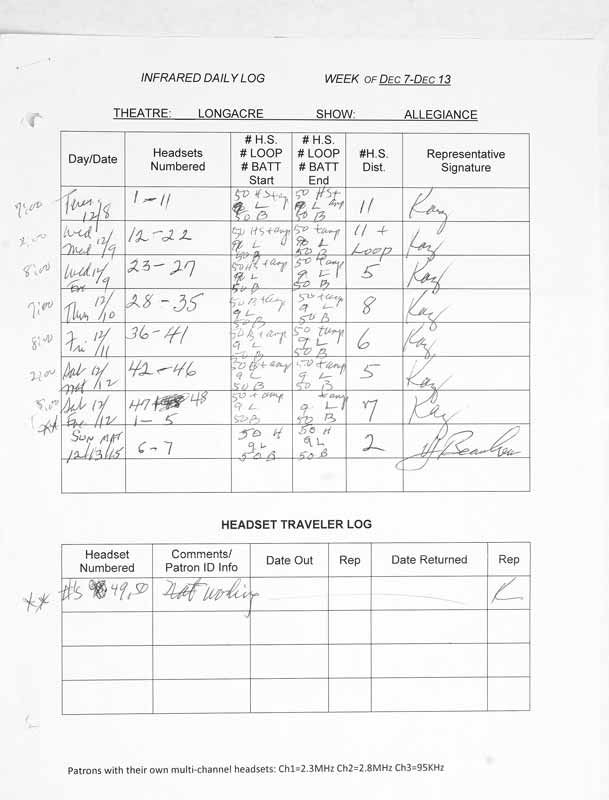 INFRARED DAILY LOG WEEK OF DEC 7-DEC 13
THEATRE: LONGACRE SHOW: ALLEGIANCE
Day/Date Headsets Numbered # H.S. # LOOP # BATT Start # H.S. # LOOP # BATT End #H.S. Dist. Representative Signature
7:00 Tues 12/8 1-11 50 HS+amp 9 L 50 B 50 HS+ amp 9 L 50 B 11 Kay
2:00 Wed Mat 12/9 12-22 50 HS+amp 9 L 50 B 50 +amp 9 L 50 B 11 + Loop Kay
8:00 Wed Eve 12/9 23-27 50 HS+amp 9 L 50 B 50 +amp 9 L 50 B 5 Kay
7:00 Thur 12/10 28-35 50 B+amp 9 L 50 B 50 +amp 9 L 50 B 8 Kay
8:00 Fri 12/11 36-41 50 B+amp 9 L 50 B 50 +amp 9 L 50 B 6 Kay
2:00 Sat Mat 12/12 42-46 50 B+amp 9 L 50 B 50 +amp 9 L 50 B 5 Kay
8:00 ** Sat Eve 12/12 47 48 1-5 50 +amp 9 L 50 B +amp 9 L 50 B 7 Kay
SUN MAT 12/13/15 6-7 50 H 9 L 50 B 50 H 9 L 50 B 2
HEADSET TRAVELER LOG
Headset Numbered Comments/ Patron ID Info Date Out Rep Date Returned Rep
** #'s 49, 50 Not working K
Patrons with their own multi-channel headsets: Ch1=2.3MHz Ch2=2.8MHz Ch3=95KHz